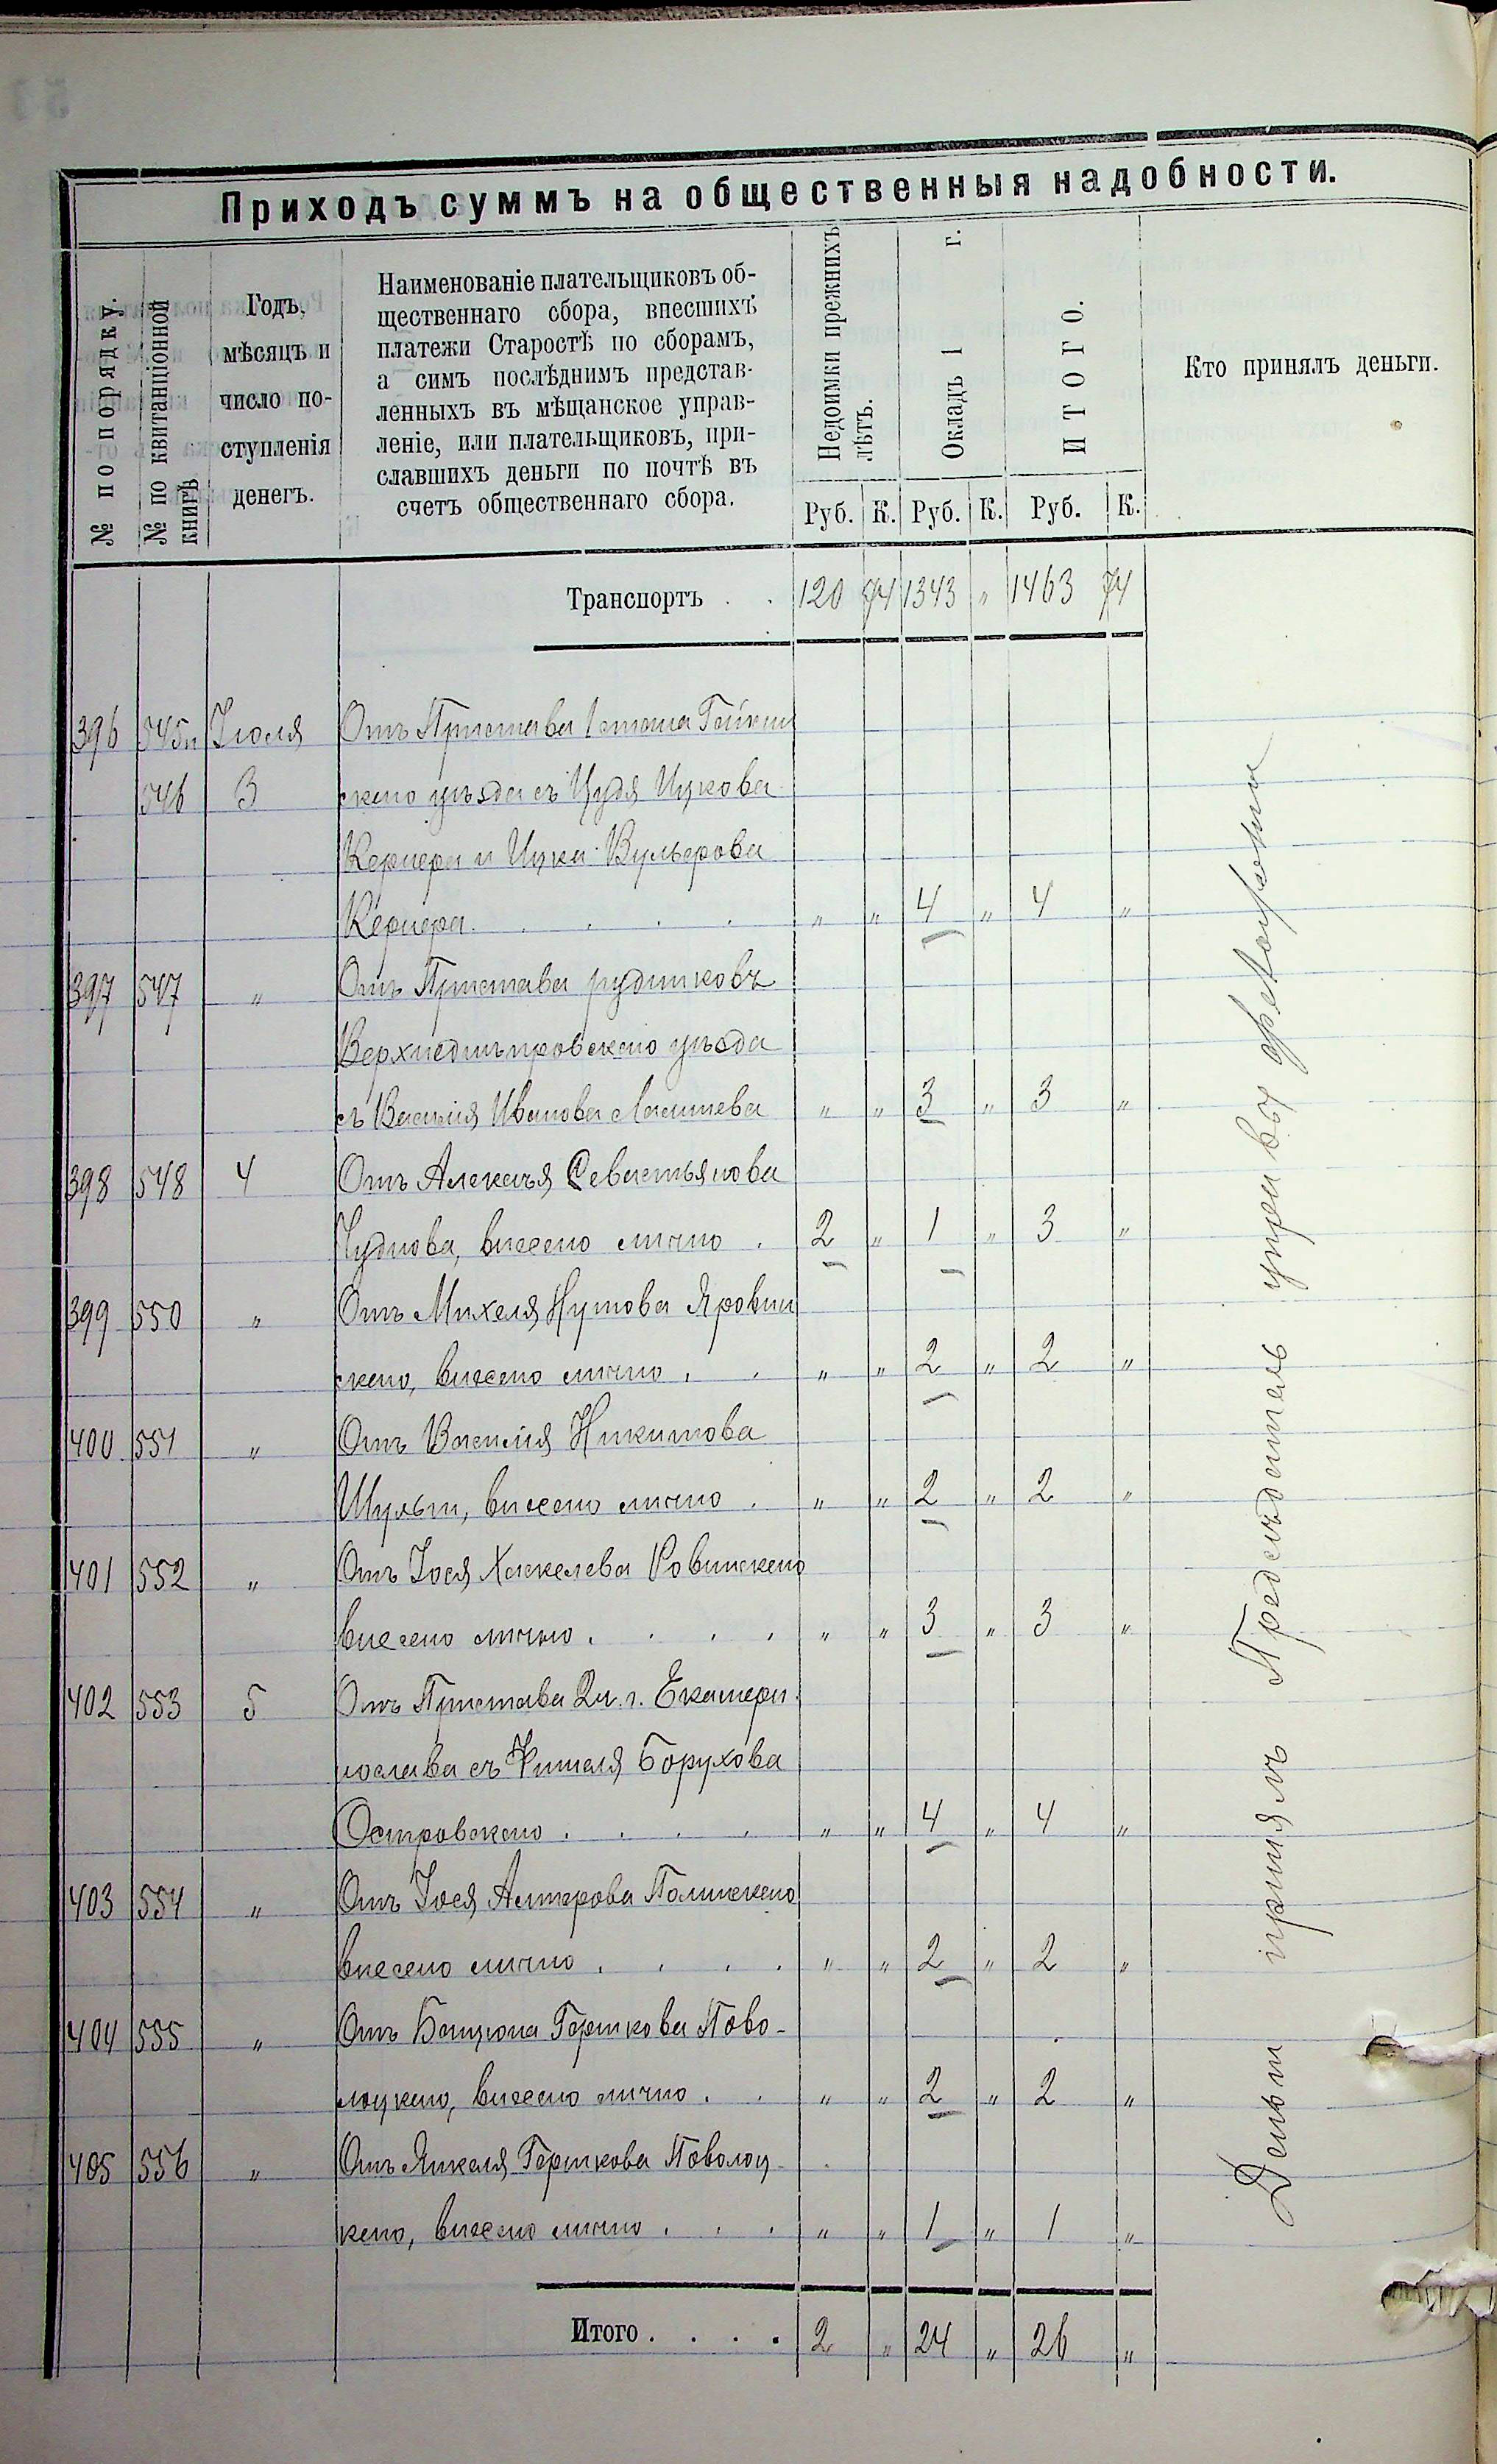 Приходъ суммъ на общественныя надобности.
№ по порядку.
№ по квитанціонной книгѣ
Годъ, мѣсяцъ и число поступленія денегъ.
Наименованіе плательщиковъ об-
щественнаго сбора, внесшихъ
платежи Старостѣ по сборамъ,
а симъ послѣднимъ представ-
ленныхъ въ мѣщанское управ-
леніе, или плательщиковъ, при-
славшихъ деньги по почтѣ въ
счетъ общественнаго сбора.
Недоимки прежнихъ лѣтъ.
Окладъ 1 г.
ИТОГО.
Кто принялъ деньги.
Руб. К. Руб. К. Руб. К.
Транспортъ . . 120 74 1343 " 1463 74
396 545 и Іюля Отъ Пристава 1 стана
546 3 скаго уѣзда съ Цукова
Кернера и Цука Вульфова
Кернера . . . . " " 4 " 4 "
397 547 " Отъ Пристава рудниковъ
Верхнеднѣпровскаго уѣзда
съ Василія Иванова " " 3 " 3 "
398 548 4 Отъ Алексѣя Севастьянова
Чуднова, внесено лично . 2 " 1 " 3 "
399 550 " Отъ Михеля Нутова Яровин
скаго, внесено лично . . " " 2 " 2 "
400 551 " Отъ Василія Никитова
внесено лично . " " 2 " 2 "
401 552 " Отъ Іося Хаскелева Ровинскаго
внесено лично . . . . " " 3 " 3 "
402 553 5 Отъ Пристава 2 ч. г. Екатери-
нослава съ Фишеля Борухова
Островскаго . . . . " " 4 " 4 "
403 554 " Отъ Іося Алтерова Полинскаго
внесено лично . . . . " " 2 " 2 "
404 555 " Отъ Бенціона Гершкова Пово-
лоцкаго, внесено лично . . " " 2 " 2 "
405 556 " Отъ Янкеля Гершкова Поволоц-
каго, внесено лично . . . " " 1 " 1 "
Итого . . . . 2 " 24 " 26 "
Деньги принялъ Предсѣдатель управы